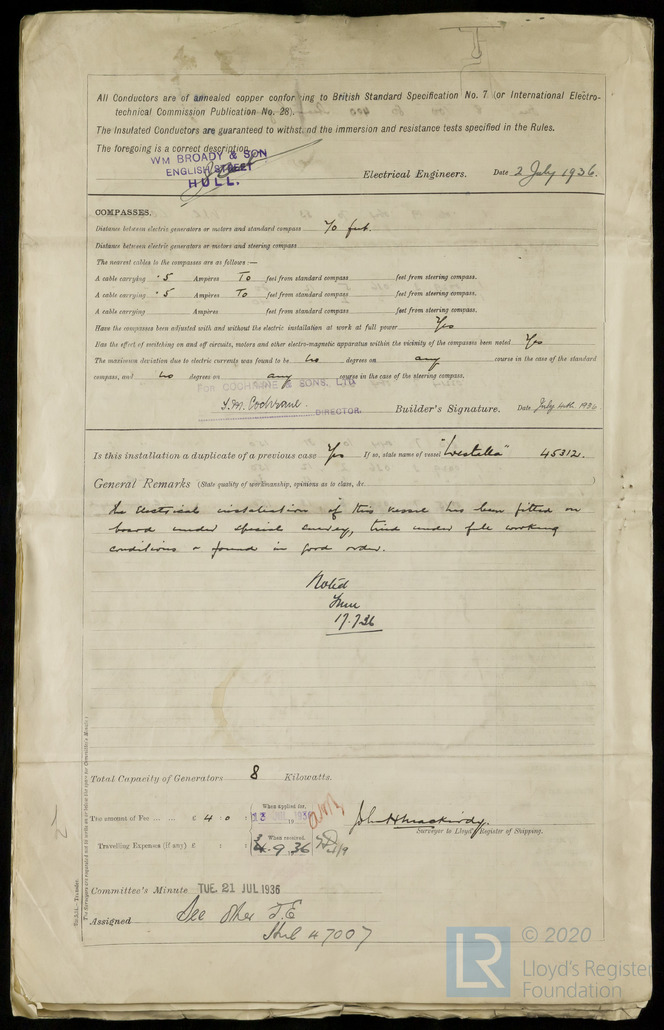 All Conductors are of annealed copper conforming to British Standard Specification No. 7 (or International Electro-
technical Commission Publication No. 28).
The Insulated Conductors are guaranteed to withstand the immersion and resistance tests specified in the Rules.
The foregoing is a correct description.
WM BROADY & SON
ENGLISH STREET
HULL.
Electrical Engineers. Date 2 July 1936.
COMPASSES.
Distance between electric generators or motors and standard compass 70 feet.
Distance between electric generators or motors and steering compass
The nearest cables to the compasses are as follows:—
A cable carrying .5 Ampères To feet from standard compass feet from steering compass.
A cable carrying .5 Ampères To feet from standard compass feet from steering compass.
A cable carrying Ampères feet from standard compass feet from steering compass.
Have the compasses been adjusted with and without the electric installation at work at full power Yes
Has the effect of switching on and off circuits, motors and other electro-magnetic apparatus within the vicinity of the compasses been noted Yes
The maximum deviation due to electric currents was found to be no degrees on any course in the case of the standard
compass, and no degrees on any course in the case of the steering compass.
For COCHRANE & SONS, LTD
Cochrane. DIRECTOR. Builder's Signature. Date July 4th 1936
Is this installation a duplicate of a previous case Yes If so, state name of vessel "Westella" 45312.
General Remarks (State quality of workmanship, opinions as to class, &c. )
The Electrical installation of this vessel has been fitted on
board under special survey, tried under full working
conditions & found in good order.
Noted
17.7.36
Total Capacity of Generators 8 Kilowatts.
The amount of Fee ... ... £ 4 : 0 : When applied for, 13 193
Travelling Expenses (if any) £ : : When received, 4.9.36
Surveyor to Lloyd's Register of Shipping.
Committee's Minute TUE. 21 JUL 1936
Assigned See other F.E
Hul 47007
LR © 2020
Lloyd's Register
Foundation